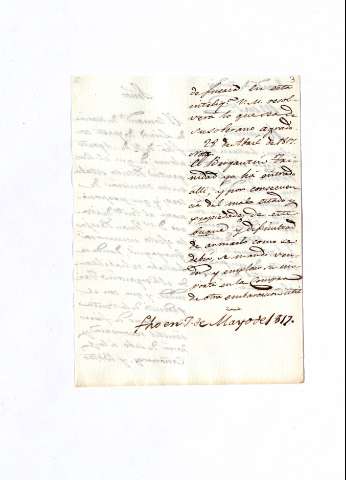 de fuerza en esta
inteligª. V.M. resol-
verá lo que sea de
su soberano agrado.
28 de Abril de 1817.
Nota
El Bergantin Tri-
nidad ya ha entrado
alli, y por consecuen-
cia del mal estado y
propiedades de este
buque y dificultad
de armarlo como se
debe, se mandó ven-
der y emplear su im-
porte en la Compra
de otra embarcacion util
fho en 7. de Mayo de 1817.